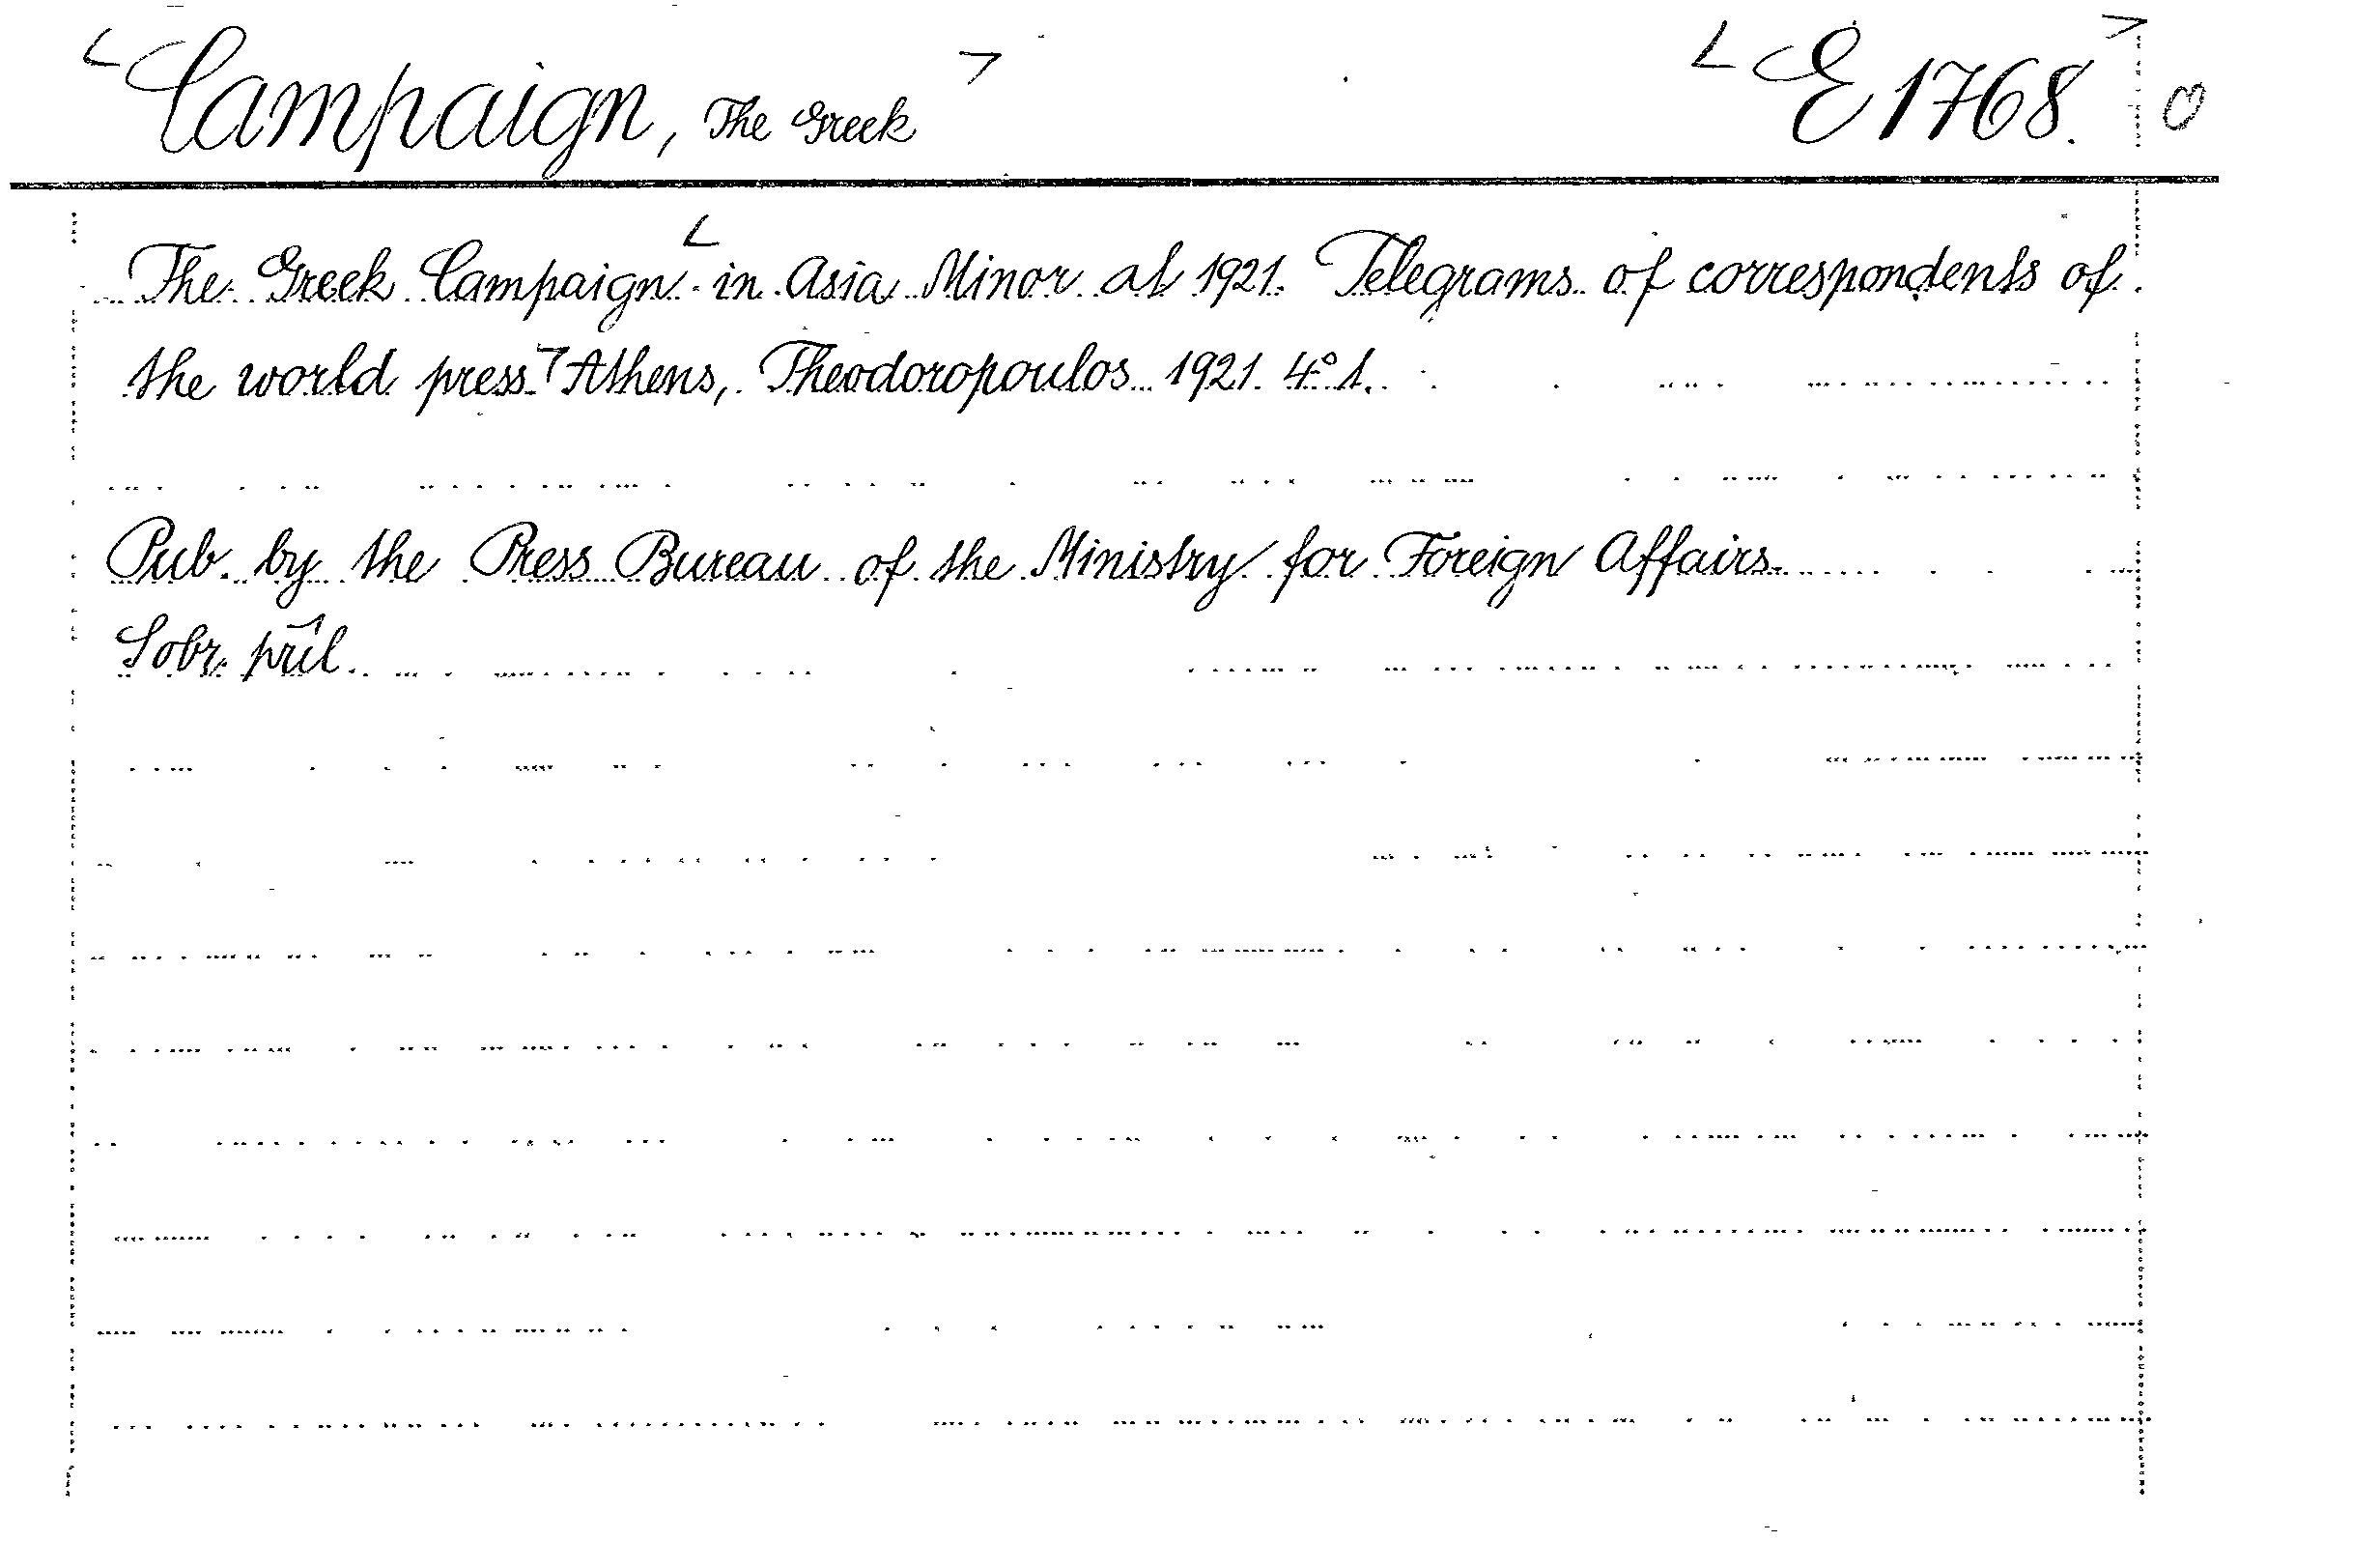 Campaign, The Greek E 1768. 0
The Greek Campaign in Asia Minor at 1921. Telegrams of correspondents of
the world press. Athens, Theodoropoulos 1921. 4° 1.
Pub. by the Press Bureau of the Ministry for Foreign Affairs.
Sobr. příl.